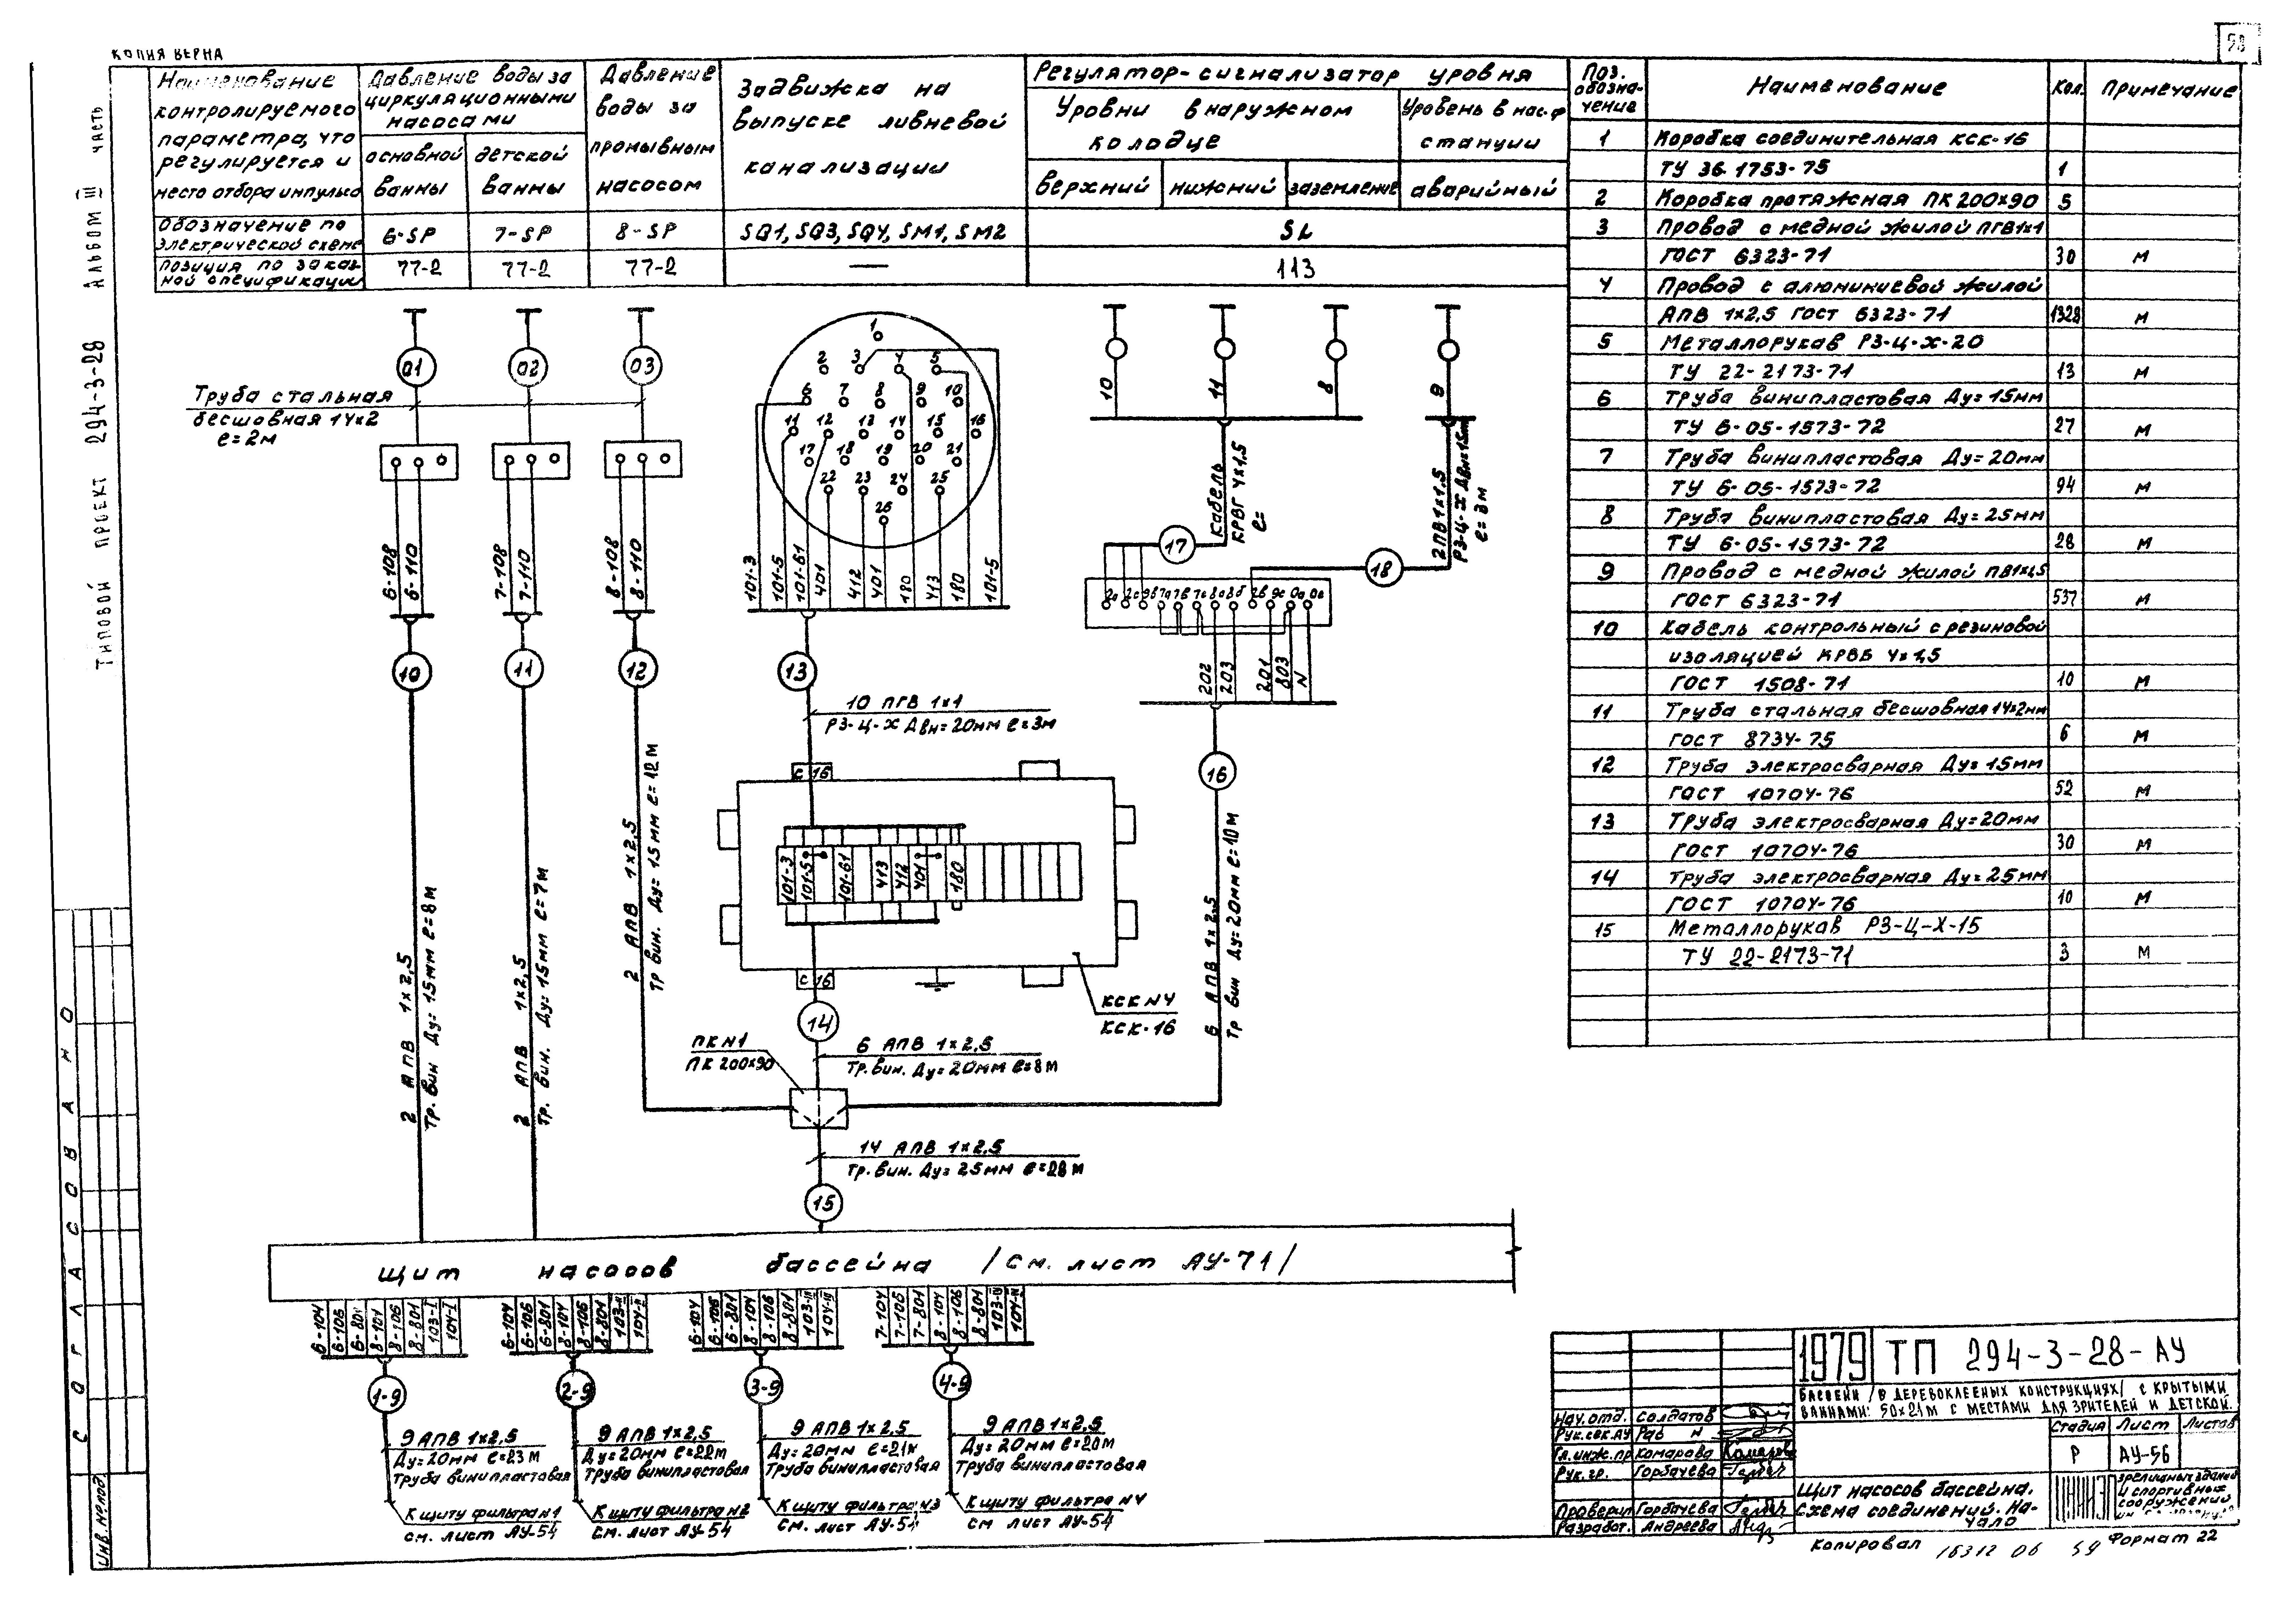 КОПИЯ ВЕРНА
58
ТИПОВОЙ ПРОЕКТ 294-3-28 АЛЬБОМ III ЧАСТЬ
СОГЛАСОВАНО
ИНВ. № ПОДЛ
Наименование контролируемого параметра, что регулируется и место отбора импульса
Давление воды за циркуляционными насосами
основной ванны
детской ванны
Давление воды за промывным насосом
Задвижка на выпуске ливневой канализации
Регулятор-сигнализатор уровня
Уровни в наружном колодце
верхний
нижний
заземление
Уровень в нас.ф станции
аварийный
Обозначение по электрической схеме
6-SP
7-SP
8-SP
SQ1, SQ3, SQ4, SM1, SM2
SL
Позиция по заказной спецификации
77-2
77-2
77-2
—
113
Поз. обозначение
Наименование
Кол.
Примечание
1 Коробка соединительная КСК-16
ТУ 36.1753-75 1
2 Коробка протяжная ПК 200×90 5
3 Провод с медной жилой ПГВ1×1
ГОСТ 6323-71 30 м
4 Провод с алюминиевой жилой
АПВ 1×2,5 ГОСТ 6323-71 1328 м
5 Металлорукав РЗ-Ц-Х-20
ТУ 22-2173-71 13 м
6 Труба винипластовая Ду=15мм
ТУ 6-05-1573-72 27 м
7 Труба винипластовая Ду=20мм
ТУ 6-05-1573-72 94 м
8 Труба винипластовая Ду=25мм
ТУ 6-05-1573-72 28 м
9 Провод с медной жилой ПВ1×1,5
ГОСТ 6323-71 537 м
10 Кабель контрольный с резиновой
изоляцией КРВБ 4×1,5
ГОСТ 1508-71 10 м
11 Труба стальная бесшовная 14×2мм
ГОСТ 8734-75 6 м
12 Труба электросварная Ду=15мм
ГОСТ 10704-76 52 м
13 Труба электросварная Ду=20мм
ГОСТ 10704-76 30 м
14 Труба электросварная Ду=25мм
ГОСТ 10704-76 10 м
15 Металлорукав РЗ-Ц-Х-15
ТУ 22-2173-71 3 м
01
02
03
Труба стальная
бесшовная 14×2
ℓ=2м
6-108
6-110
7-108
7-110
8-108
8-110
10
11
12
2 АПВ 1×2,5
Тр. вин Ду=15мм ℓ=8м
2 АПВ 1×2,5
Тр. вин. Ду=15мм ℓ=7м
2 АПВ 1×2,5
Тр вин. Ду=15мм ℓ=12м
1
2 3 4 5
6 7 8 9 10
11 12 13 14 15 16
17 18 19 20 21
22 23 24 25
26
101-3
101-5
101-61
401
412
401
180
413
180
101-5
13
10 ПГВ 1×1
РЗ-Ц-Х Двн=20мм ℓ=3м
С 16
101-3
101-5
101-61
413
412
401
180
С 16
КСК N4
КСК-16
14
6 АПВ 1×2,5
Тр. вин. Ду=20мм ℓ=8м
ПК N1
ПК 200×90
14 АПВ 1×2,5
Тр. вин. Ду=25мм ℓ=28м
15
10
11
8
9
Кабель
КРВГ 4×1,5
ℓ=
2ПВ1×1,5
РЗ-Ц-Х Двн=15мм
ℓ=3м
17
18
2а 2с 9в 7а 7в 7с 8а 8б 2в 9с 0а 0в
202
203
201
803
N
16
6 АПВ 1×2,5
Тр вин Ду=20мм ℓ=10м
Щит насосов бассейна /см. лист АУ-71/
6-104
6-106
6-801
8-104
8-106
8-801
103-I
104-I
6-104
6-106
6-801
8-104
8-106
8-801
103-II
104-II
6-104
6-106
6-801
8-104
8-106
8-801
103-III
104-III
7-104
7-106
7-801
8-104
8-106
8-801
103-IV
104-IV
1-9
2-9
3-9
4-9
9 АПВ 1×2,5
Ду=20мм ℓ=23м
Труба винипластовая
К щиту фильтра N1
см. лист АУ-54
9 АПВ 1×2,5
Ду=20мм ℓ=22м
Труба винипластовая
К щиту фильтра N2
см. лист АУ-54
9 АПВ 1×2,5
Ду=20мм ℓ=21м
Труба винипластовая
К щиту фильтра N3
см. лист АУ-54
9 АПВ 1×2,5
Ду=20мм ℓ=20м
Труба винипластовая
К щиту фильтра N4
см лист АУ-54
1979 ТП 294-3-28-АУ
БАССЕЙН /В ДЕРЕВОКЛЕЕНЫХ КОНСТРУКЦИЯХ/ С КРЫТЫМИ
ВАННАМИ: 50×21м С МЕСТАМИ ДЛЯ ЗРИТЕЛЕЙ И ДЕТСКОЙ.
Нач. отд. Солдатов
Рук. сек. АУ
Гл. инж. пр Комарова
Рук. гр. Горбачева
Проверил Горбачева
Разработ. Андреева
Стадия Лист Листов
Р АУ-56
Щит насосов бассейна.
Схема соединений. На-
чало
зрелищных зданий
и спортивных
сооружений
Копировал 16312 06 59 Формат 22